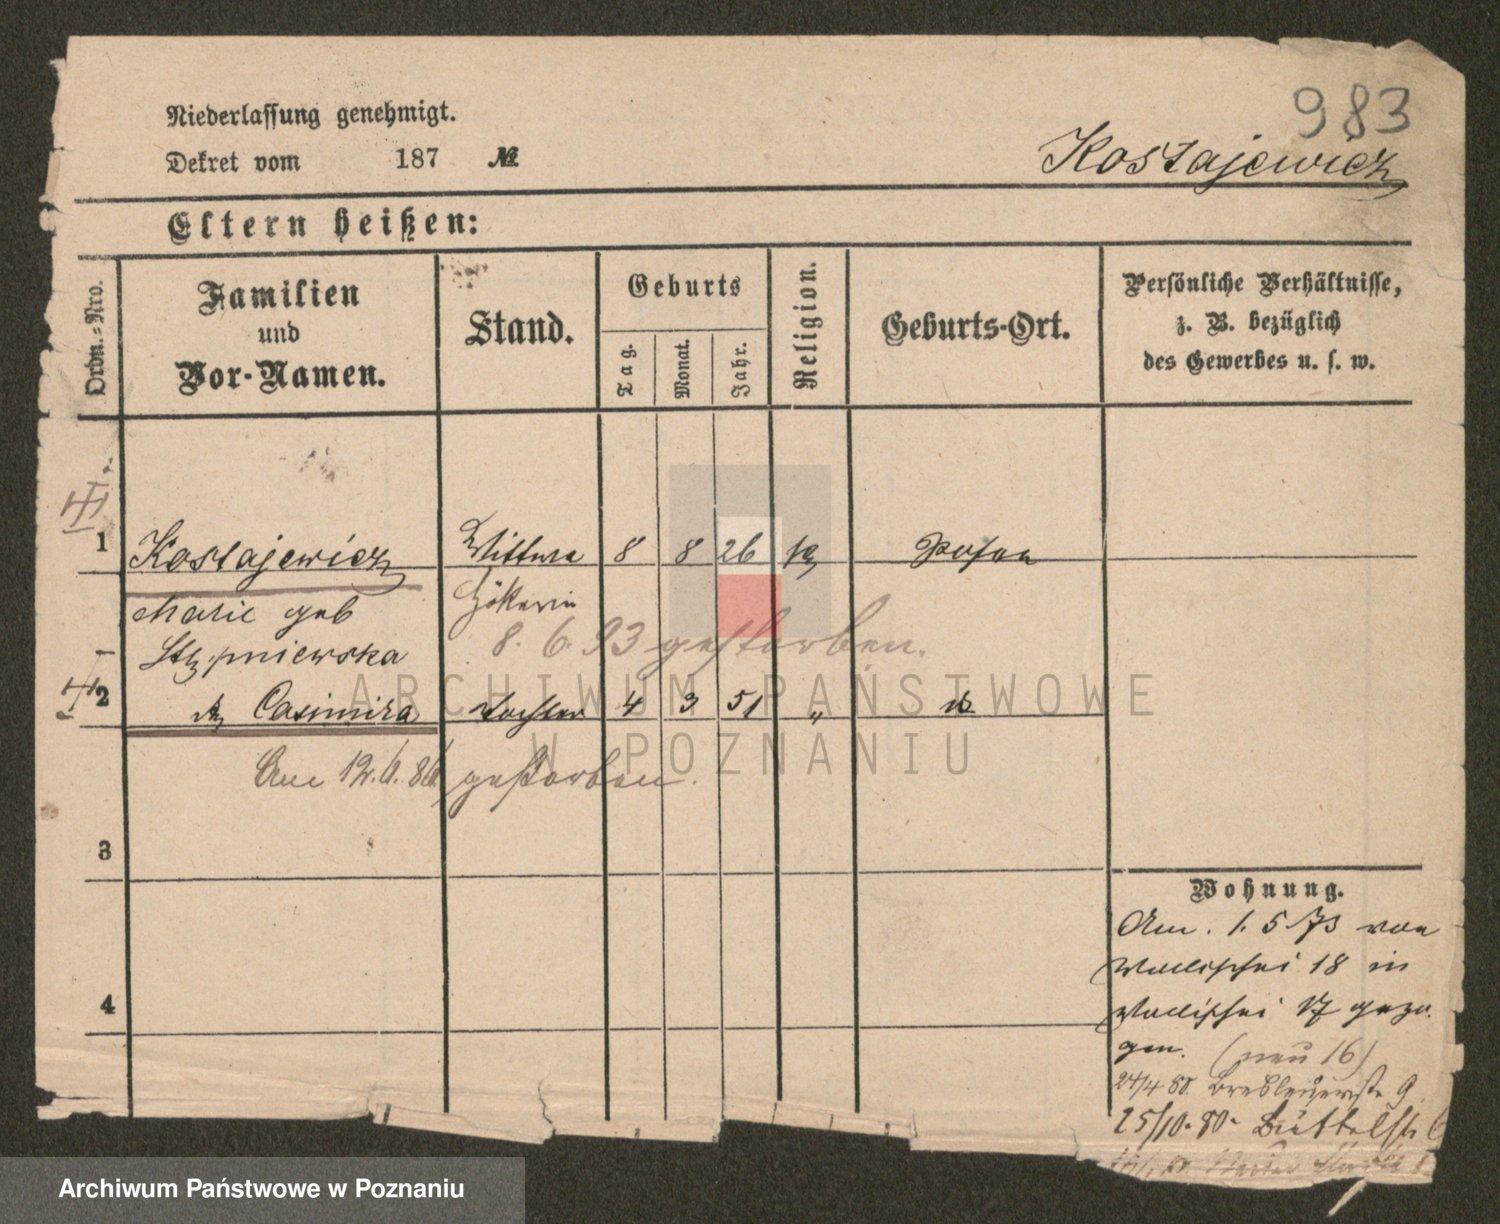 983
Niederlassung genehmigt.
Dekret vom 187 №
Kostajewicz
Eltern heißen:
Ordn.-Nro.
Familien und Vor-Namen.
Stand.
Geburts
Tag.
Monat.
Jahr.
Religion.
Geburts-Ort.
Persönliche Verhältnisse,
z. B. bezüglich
des Gewerbes u. s. w.
1 Kostajewicz Wittwe 8 8 26 Posen
Marie geb Hökerin
8. 6. 93 gestorben.
2 Casimira Tochter 4 3 51 " do
Am 12. 6. 86 gestorben.
3
4
Wohnung.
Am. 1. 5 73 von
Wallischei 18 in
Wallischei 17 gezo-
gen. (neu 16)
24/4 80. Breslauerstr 9
25/10. 80. Büttelstr 6
ARCHIWUM PAŃSTWOWE
W POZNANIU
Archiwum Państwowe w Poznaniu